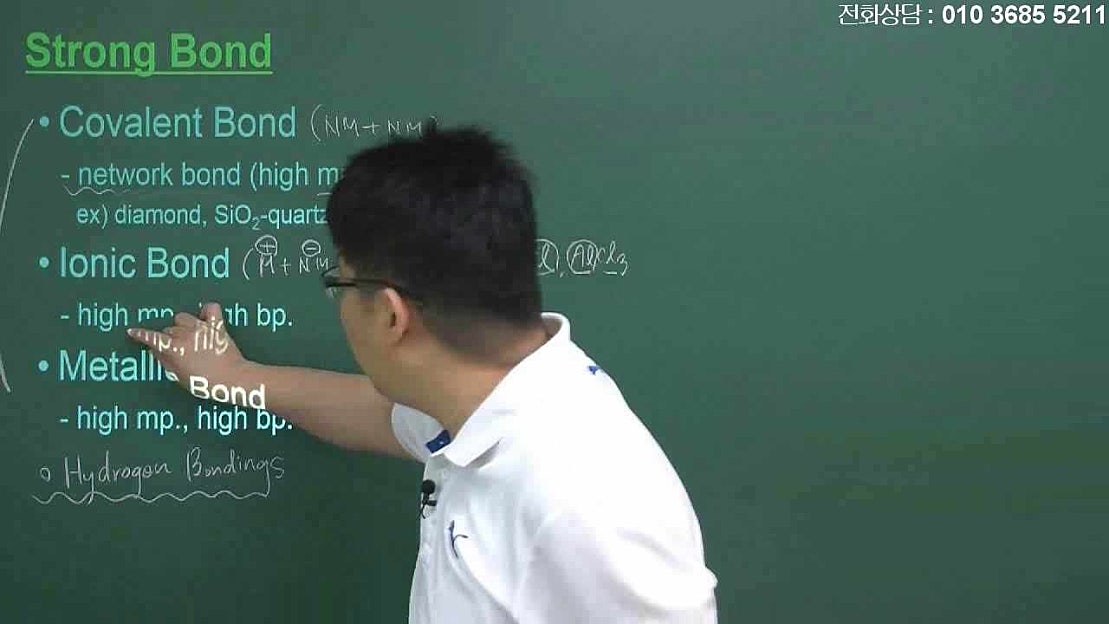 전화상담 : 010 3685 5211
Strong Bond
• Covalent Bond (NM + NM)
- network bond (high m
ex) diamond, SiO₂-quartz
• Ionic Bond (M + NM AlCl₃
- high mp., high bp.
• Metallic Bond
- high mp., high bp.
Hydrogen Bondings